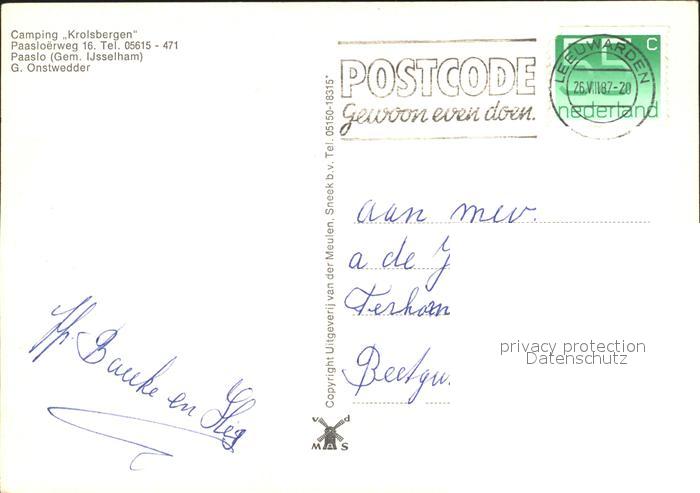 Camping „Krolsbergen"
Paasloërweg 16. Tel. 05615 - 471
Paaslo (Gem. IJsselham)
G. Onstwedder
POSTCODE
Gewoon even doen.
LEEUWARDEN
26.VIII87-20
C
nederland
Copyright Uitgeverij van der Meulen, Sneek b.v. Tel. 05150-18315*
aan mev.
a de J
Terhorn
Beetgu.
privacy protection
Datenschutz
Bauke en
v d
M A S